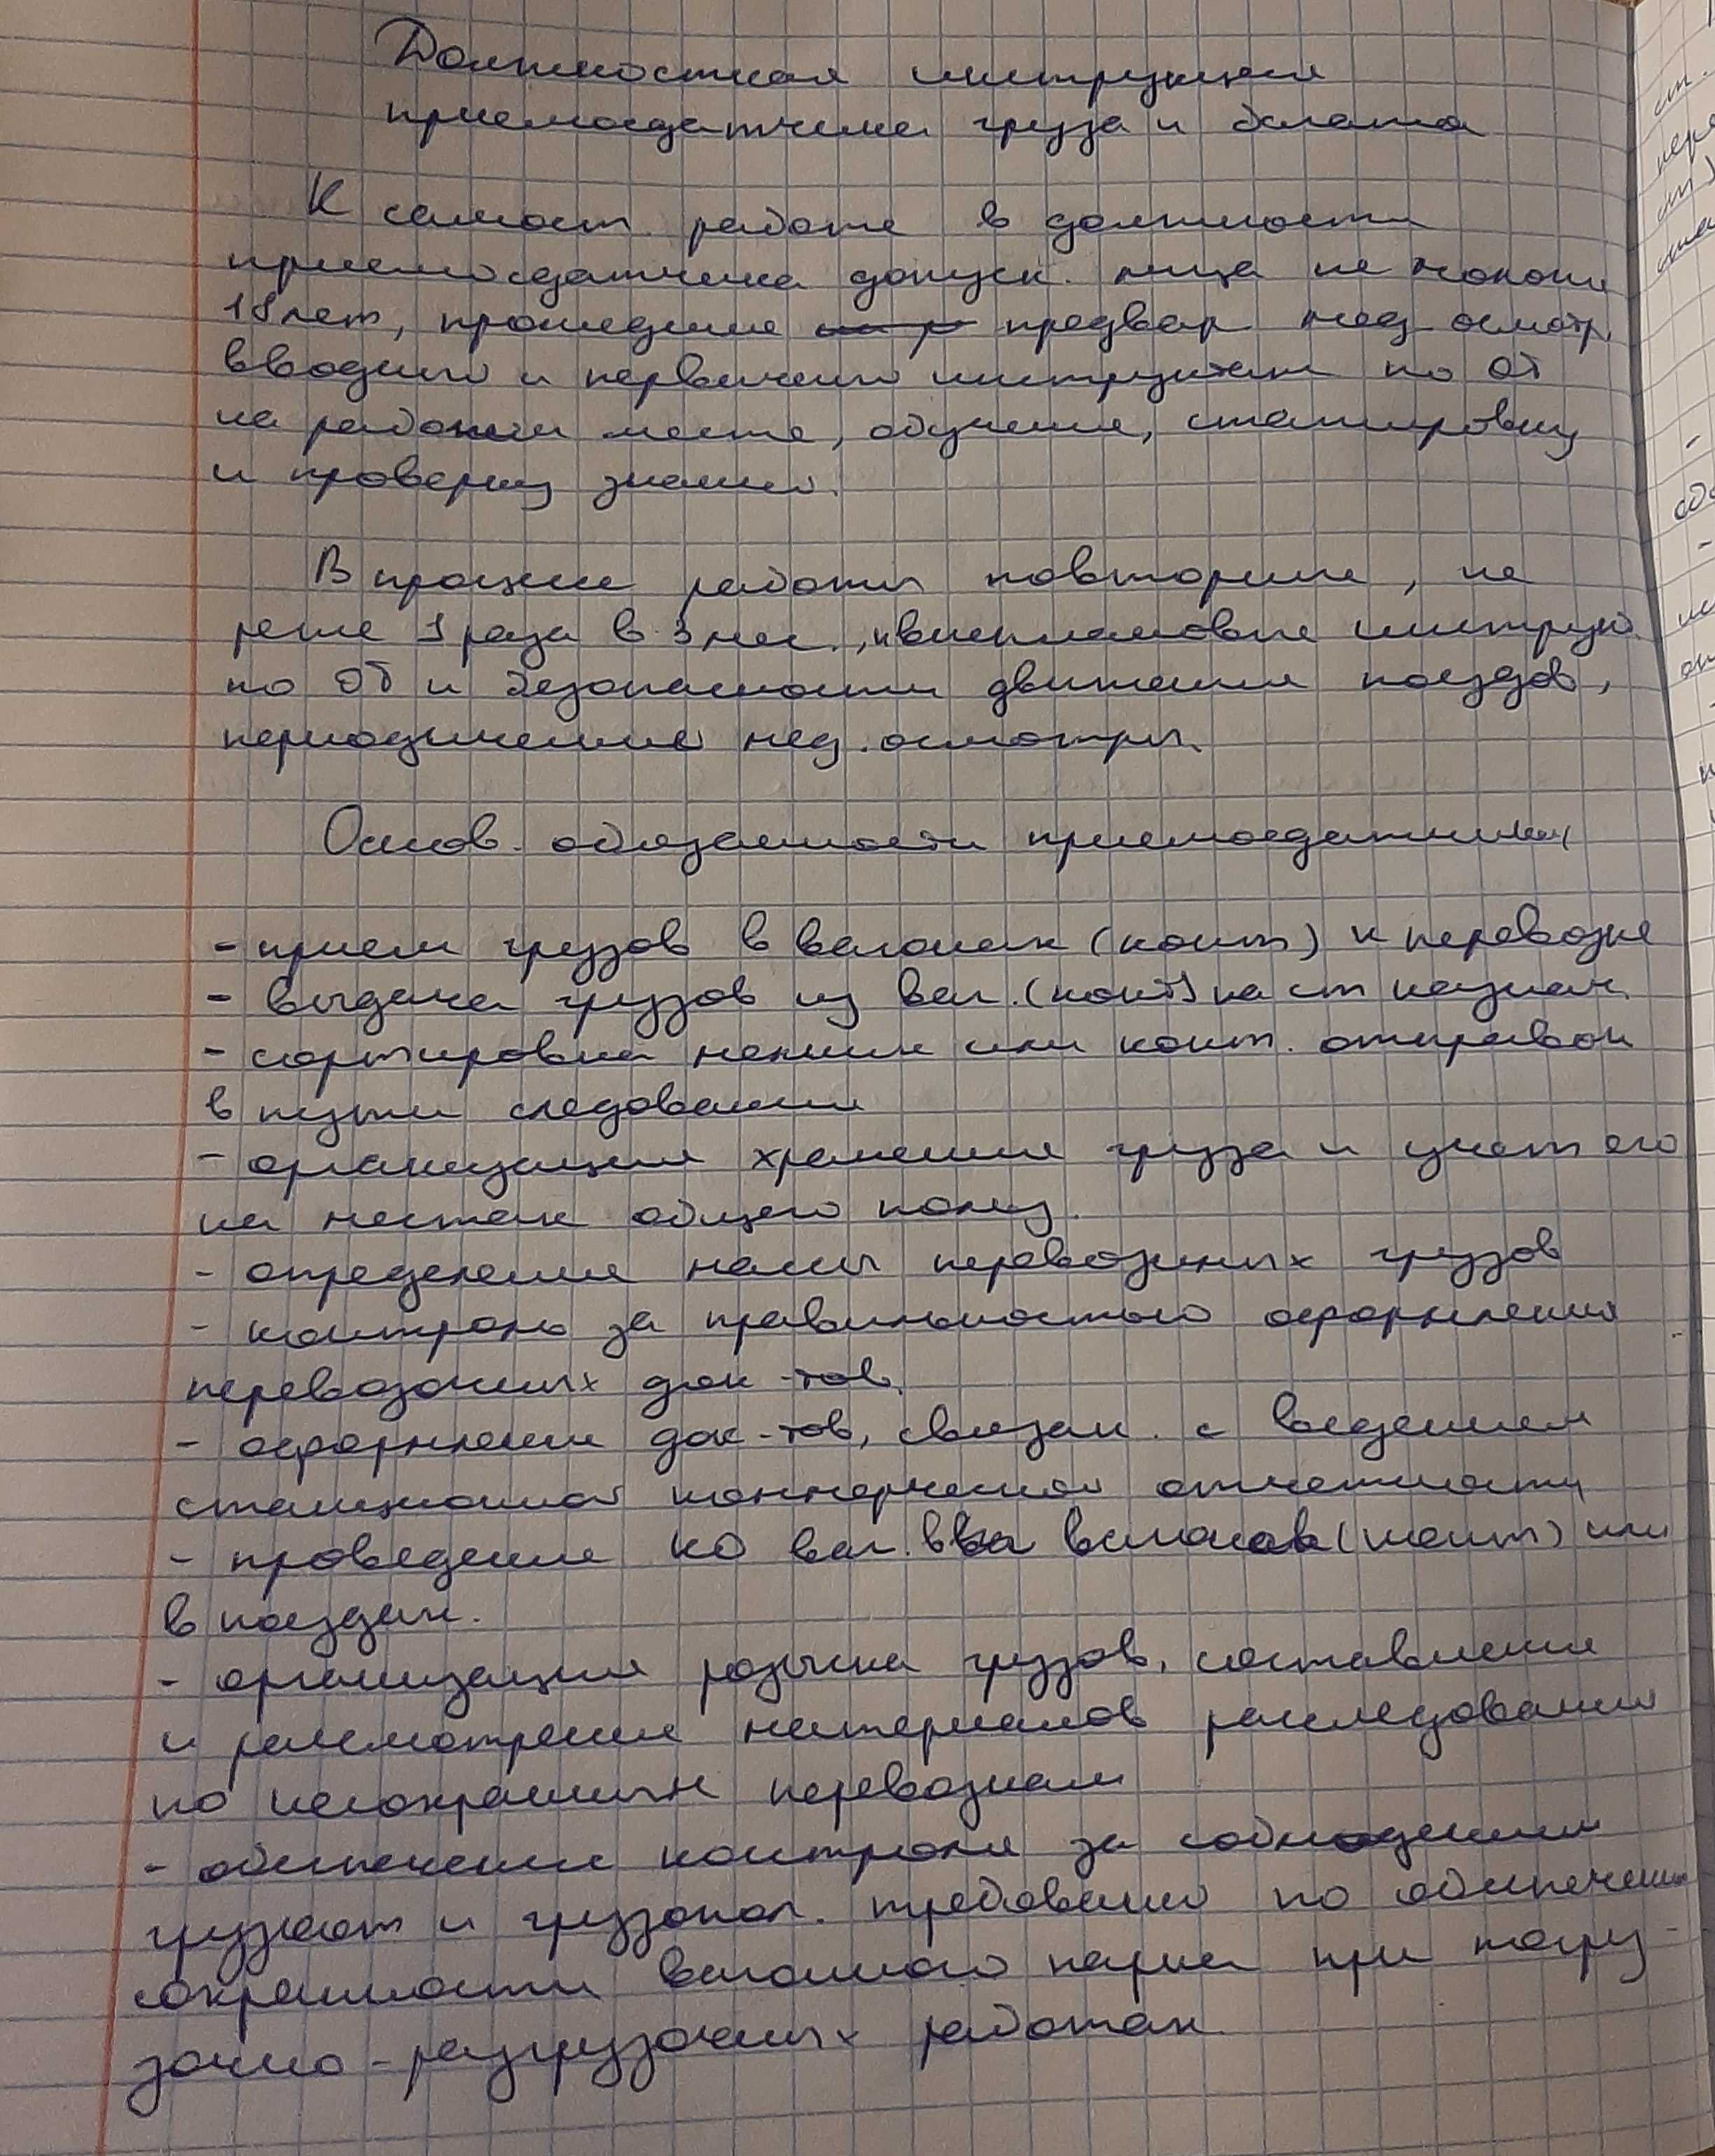 Должностная инструкция
приемосдатчика груза и багажа
К самост. работе в должности
приемосдатчика допуск. лица не моложе
18 лет, прошедшие предвар мед осмотр,
вводный и первичный инструктаж по ОТ
на рабочем месте, обучение, стажировку
и проверку знаний.
В процессе работы повторные, не
реже 1 раза в 3 мес., внеплановые инструк
по ОТ и безопасности движения поездов,
периодические мед. осмотры.
Основ. обязанности приемосдатчика
- прием грузов в вагонах (конт) к перевозке
- выдача грузов из ваг. (конт) на ст назнач.
- сортировка мелких или конт. отправок
в пути следования
- организация хранения груза и учет его
на местах общего польз.
- определение массы перевозимых грузов
- контроль за правильностью оформления
перевозочных док-тов.
- оформление док-тов, связан. с ведением
станционной коммерческой отчетности
- проведение КО ваг. вагонов (конт) или
в поездах.
- организация розыска грузов, составление
и рассмотрение материалов расследования
по несохранным перевозкам
- обеспечение контроля за соблюдением
грузоот и грузопол. требований по обеспечению
сохранности вагонного парка при погру-
зочно-разгрузочных работах